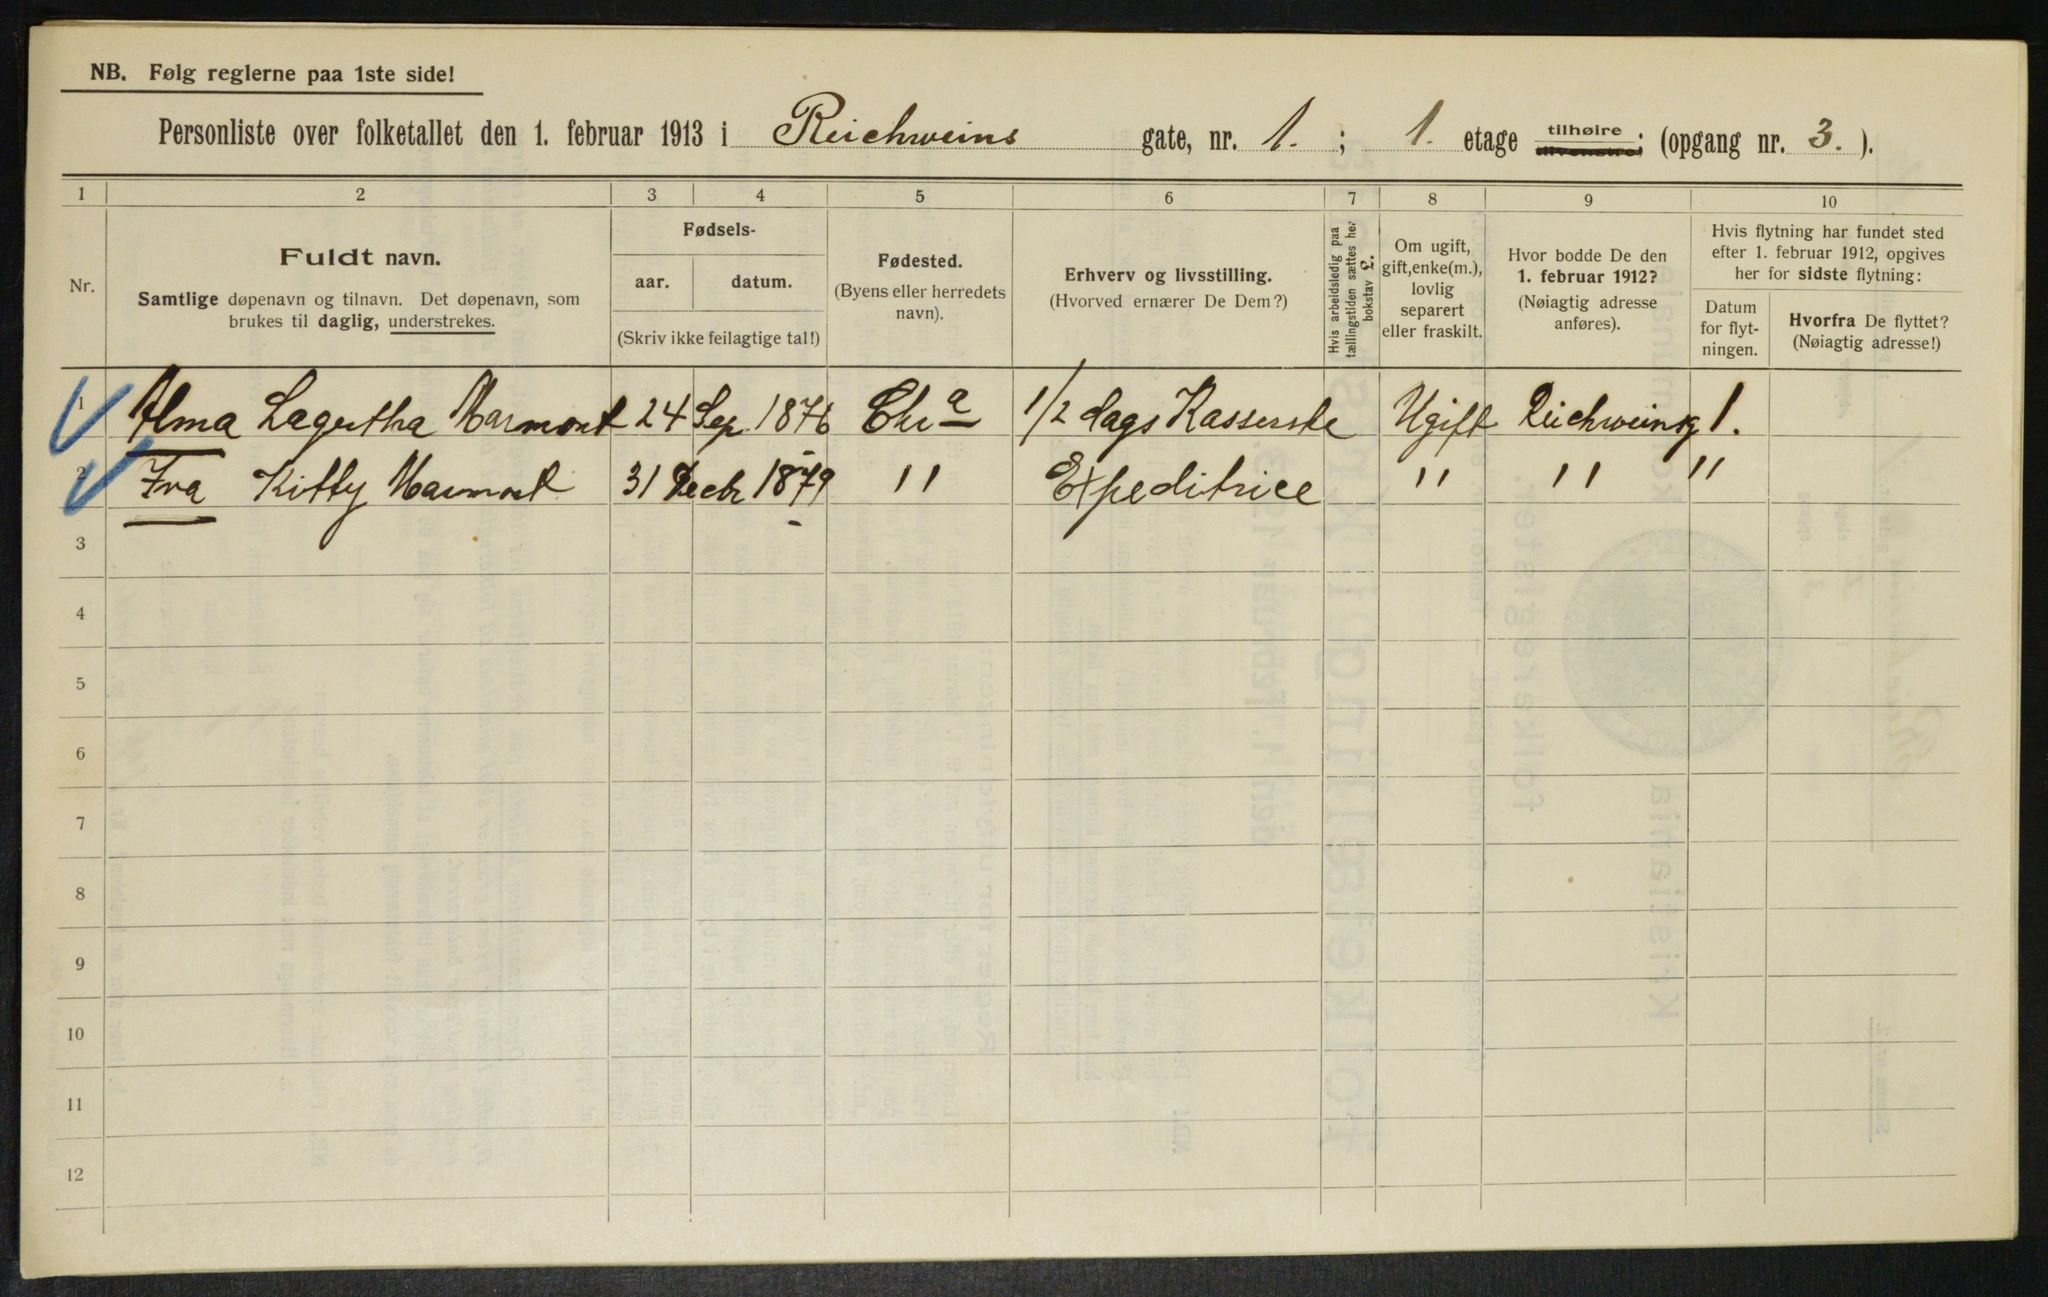 NB. Følg reglerne paa 1ste side!
Personliste over folketallet den 1. februar 1913 i Reichweins gate, nr. 1. ; 1. etage tilhøire tilvenstre; (opgang nr. 3.).
1 2 3 4 5 6 7 8 9 10
Nr.
Fuldt navn.
Samtlige døpenavn og tilnavn. Det døpenavn, som
brukes til daglig, understrekes.
Fødsels-
aar. datum.
(Skriv ikke feilagtige tal!)
Fødested.
(Byens eller herredets
navn).
Erhverv og livsstilling.
(Hvorved ernærer De Dem?)
Hvis arbeidsledig paa
tællingstiden sættes her
bokstav £.
Om ugift,
gift, enke(m.),
lovlig
separert
eller fraskilt.
Hvor bodde De den
1. februar 1912?
(Nøiagtig adresse
anføres).
Hvis flytning har fundet sted
efter 1. februar 1912, opgives
her for sidste flytning:
Datum
for flyt-
ningen.
Hvorfra De flyttet?
(Nøiagtig adresse!)
1 Alma Lagertha Marmont 24 Sep 1876 Chr a 1/2 dags Kasserske Ugift Reichweinsg 1.
2 Iva Kitty Marmont 31 Decbr 1879 " Expeditrice " " "
3
4
5
6
7
8
9
10
11
12